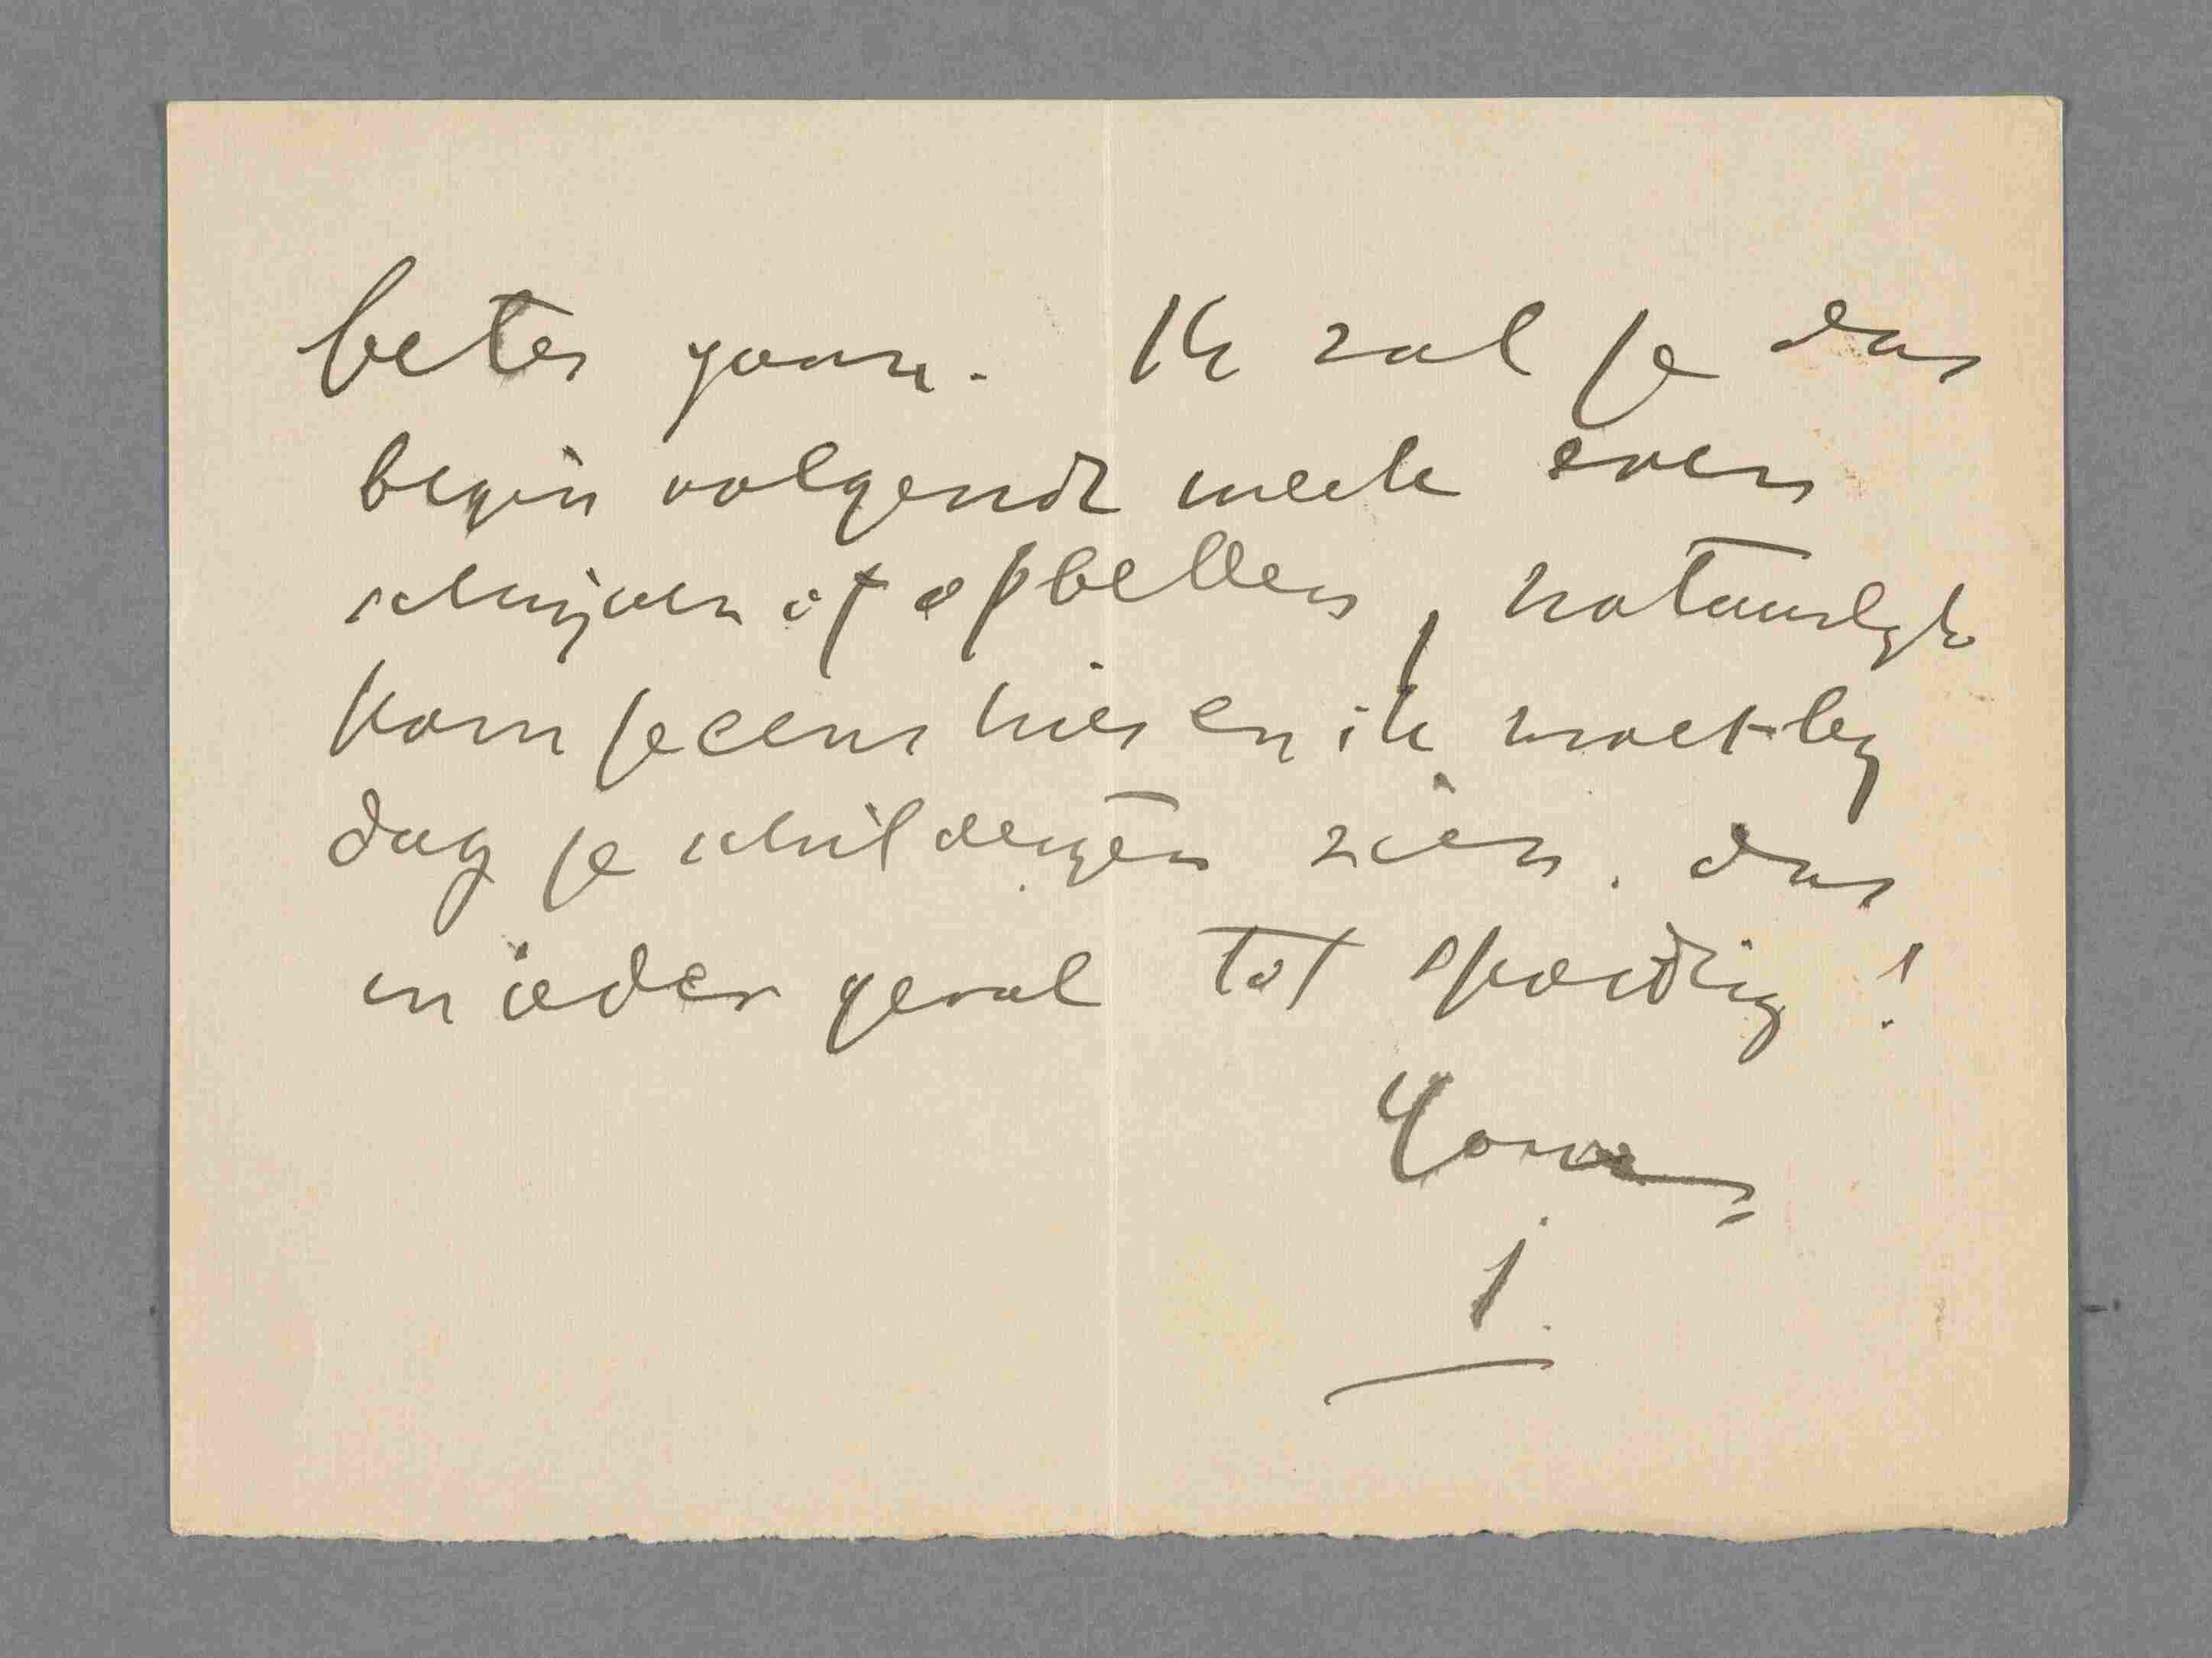 beter gaan. Ik zal je dan
begin volgende week even
schrijven of opbellen, natuurlijk
kom je eens hier en ik moet bij
dag je schilderijen zien. dus
in ieder geval tot spoedig!